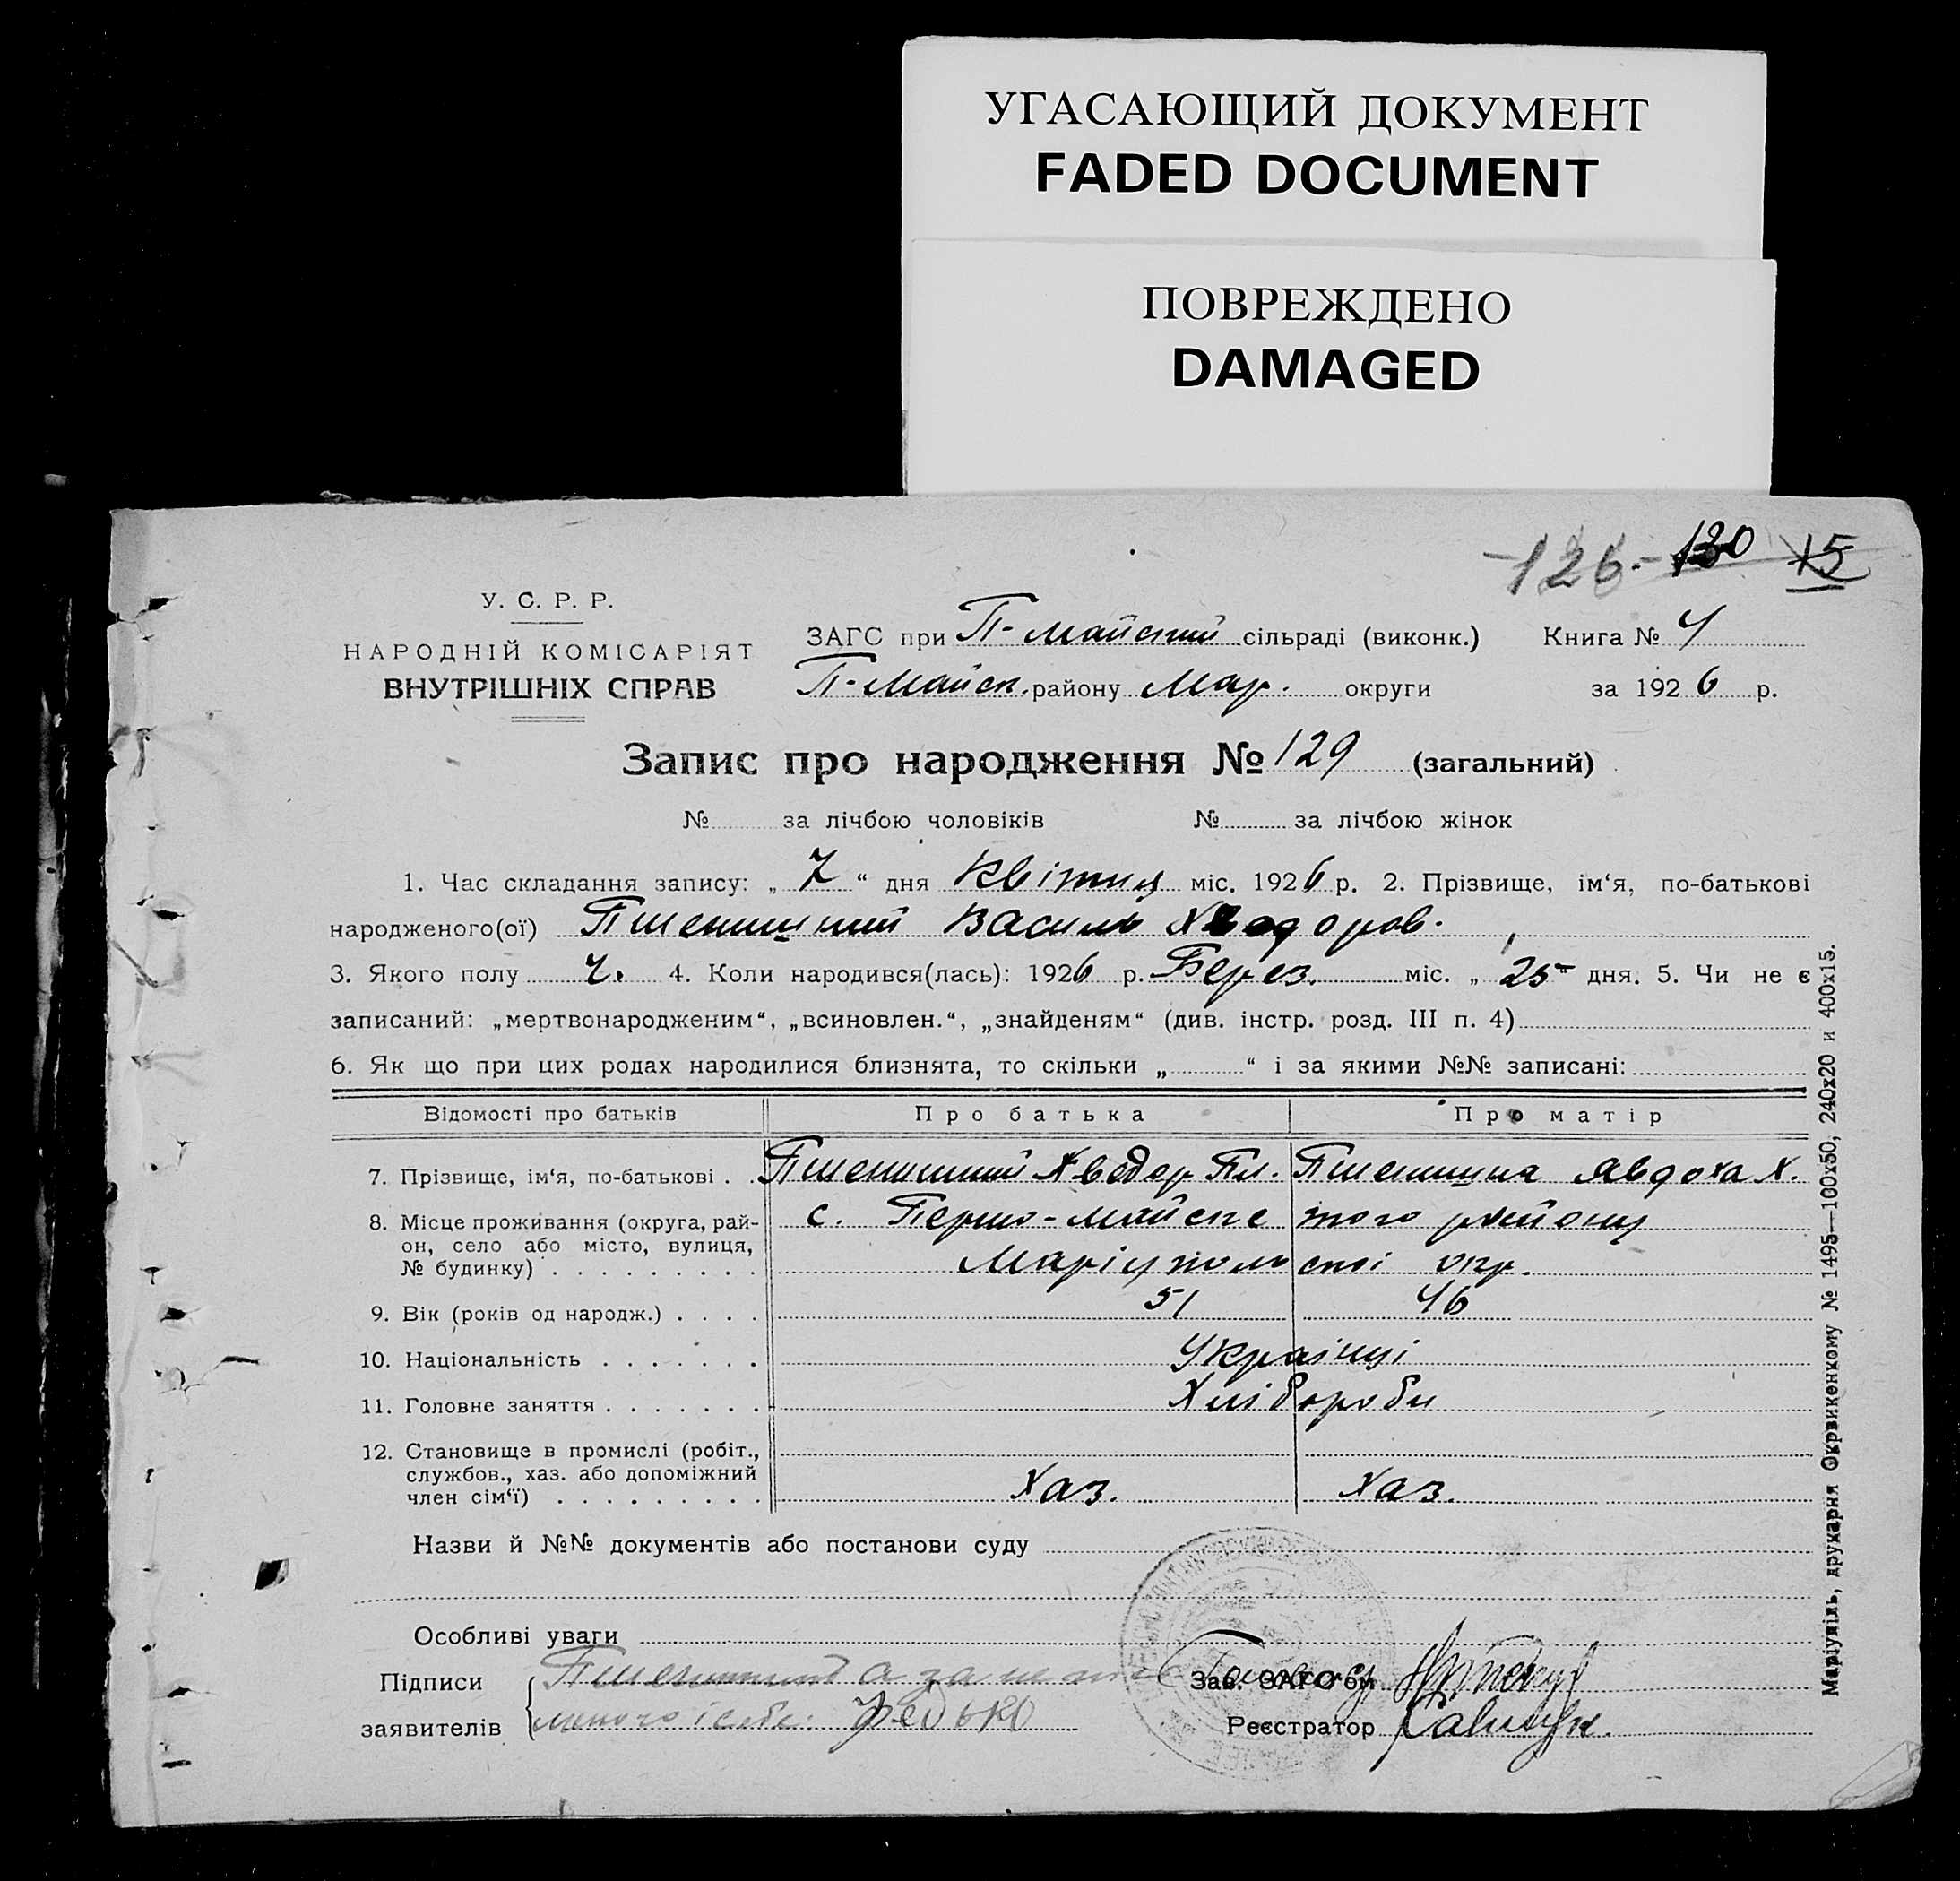 УГАСАЮЩИЙ ДОКУМЕНТ
FADED DOCUMENT
ПОВРЕЖДЕНО
DAMAGED
126 - 130 15
У. С. Р. Р.
НАРОДНІЙ КОМІСАРІЯТ
ВНУТРІШНІХ СПРАВ
ЗАГС при П-Майський сільраді (виконк.) Книга № 4
П-Майск. району Мар. округи за 1926 р.
Запис про народження № 129 (загальний)
№ за лічбою чоловіків № за лічбою жінок
1. Час складання запису: „ 7 “ дня Квітня міс. 1926 р. 2. Прізвище, ім‘я, по-батькові
народженого(ої) Пшенишний Василь Хведоров.
3. Якого полу ч. 4. Коли народився(лась): 1926 р. Берез. міс. „ 25 “ дня. 5. Чи не є
записаний: „мертвонародженим“, „всиновлен.“, „знайденям“ (див. інстр. розд. III п. 4)
6. Як що при цих родах народилися близнята, то скільки „ “ і за якими №№ записані:
Відомості про батьків Про батька Про матір
7. Прізвище, ім‘я, по-батькові . . Пшенишний Хведор Пл. Пшенишна Явдоха Х.
8. Місце проживання (округа, рай- с. Першо-Майське того району
он, село або місто, вулиця,
№ будинку) . . . . . . . . . Маріупольскої окр.
9. Вік (років од народж.) . . . . 51 46
10. Національність . . . . . . . Українці
11. Головне заняття . . . . . . . Хлібороби
12. Становище в промислі (робіт.,
службов., хаз. або допоміжний
член сім‘ї) . . . . . . . . . Хаз. Хаз.
Назви й №№ документів або постанови суду
Особливі уваги
Підписи Пшенишний а за не Зав. ЗАГС‘ом
заявителів Федько Реєстратор
Маріупіль, друкарня Окрвиконкому № 1495—100х50, 240х20 и 400х15.